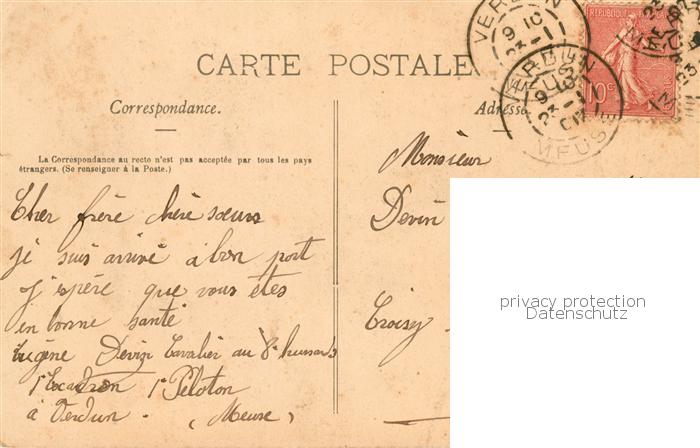 CARTE POSTALE
Correspondance.
Adresse
La Correspondance au recto n'est pas acceptée par tous les pays
étrangers. (Se renseigner à la Poste.)
VERDUN
MEUSE
10c
Monsieur
Devin
Croisy
Cher frère chère sœur
je suis arrivé à bon port
j'espére que vous êtes
en bonne santé
Eugène Cavalier au 8e hussards
1e Escadron 1e Peloton
à Verdun. (Meuse)
privacy protection
Datenschutz